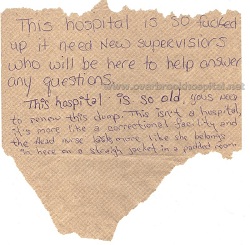 This hospital is so fucked
up it need new supervisors
who will be here to help answer
any questions.
www.overbrookhospital.net
This hospital is so old, yous need
to renew this dump. This isn't a hospital,
it's more like a correctional facility and
the Head nurse look more like she belongs
in here on a straigh jacket in a padded room.